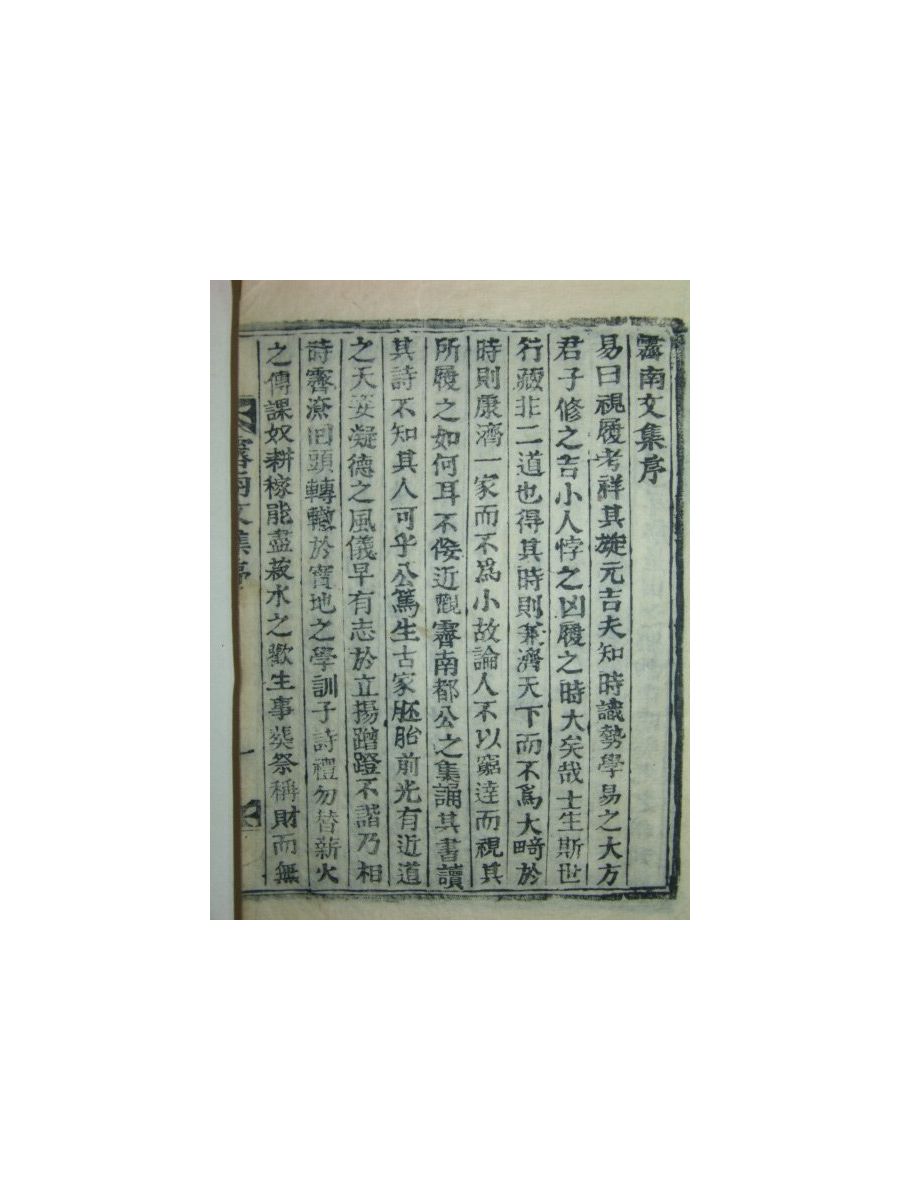 霽南文集序
易曰視履考祥其旋元吉夫知時識勢學易之大方
君子修之吉小人悖之凶履之時大矣哉士生斯世
行藏非二道也得其時則兼濟天下而不爲大畸於
時則康濟一家而不爲小故論人不以窮達而視其
所履之如何耳不佞近覩霽南都公之集誦其書讀
其詩不知其人可乎公篤生古家胚胎前光有近道
之天姿凝德之風儀早有志於立揚蹭蹬不諧乃相
時霽潦回頭轉轍於實地之學訓子詩禮勿替薪火
之傳課奴耕稼能盡菽水之歡生事葬祭稱財而無
霽南文集序
一